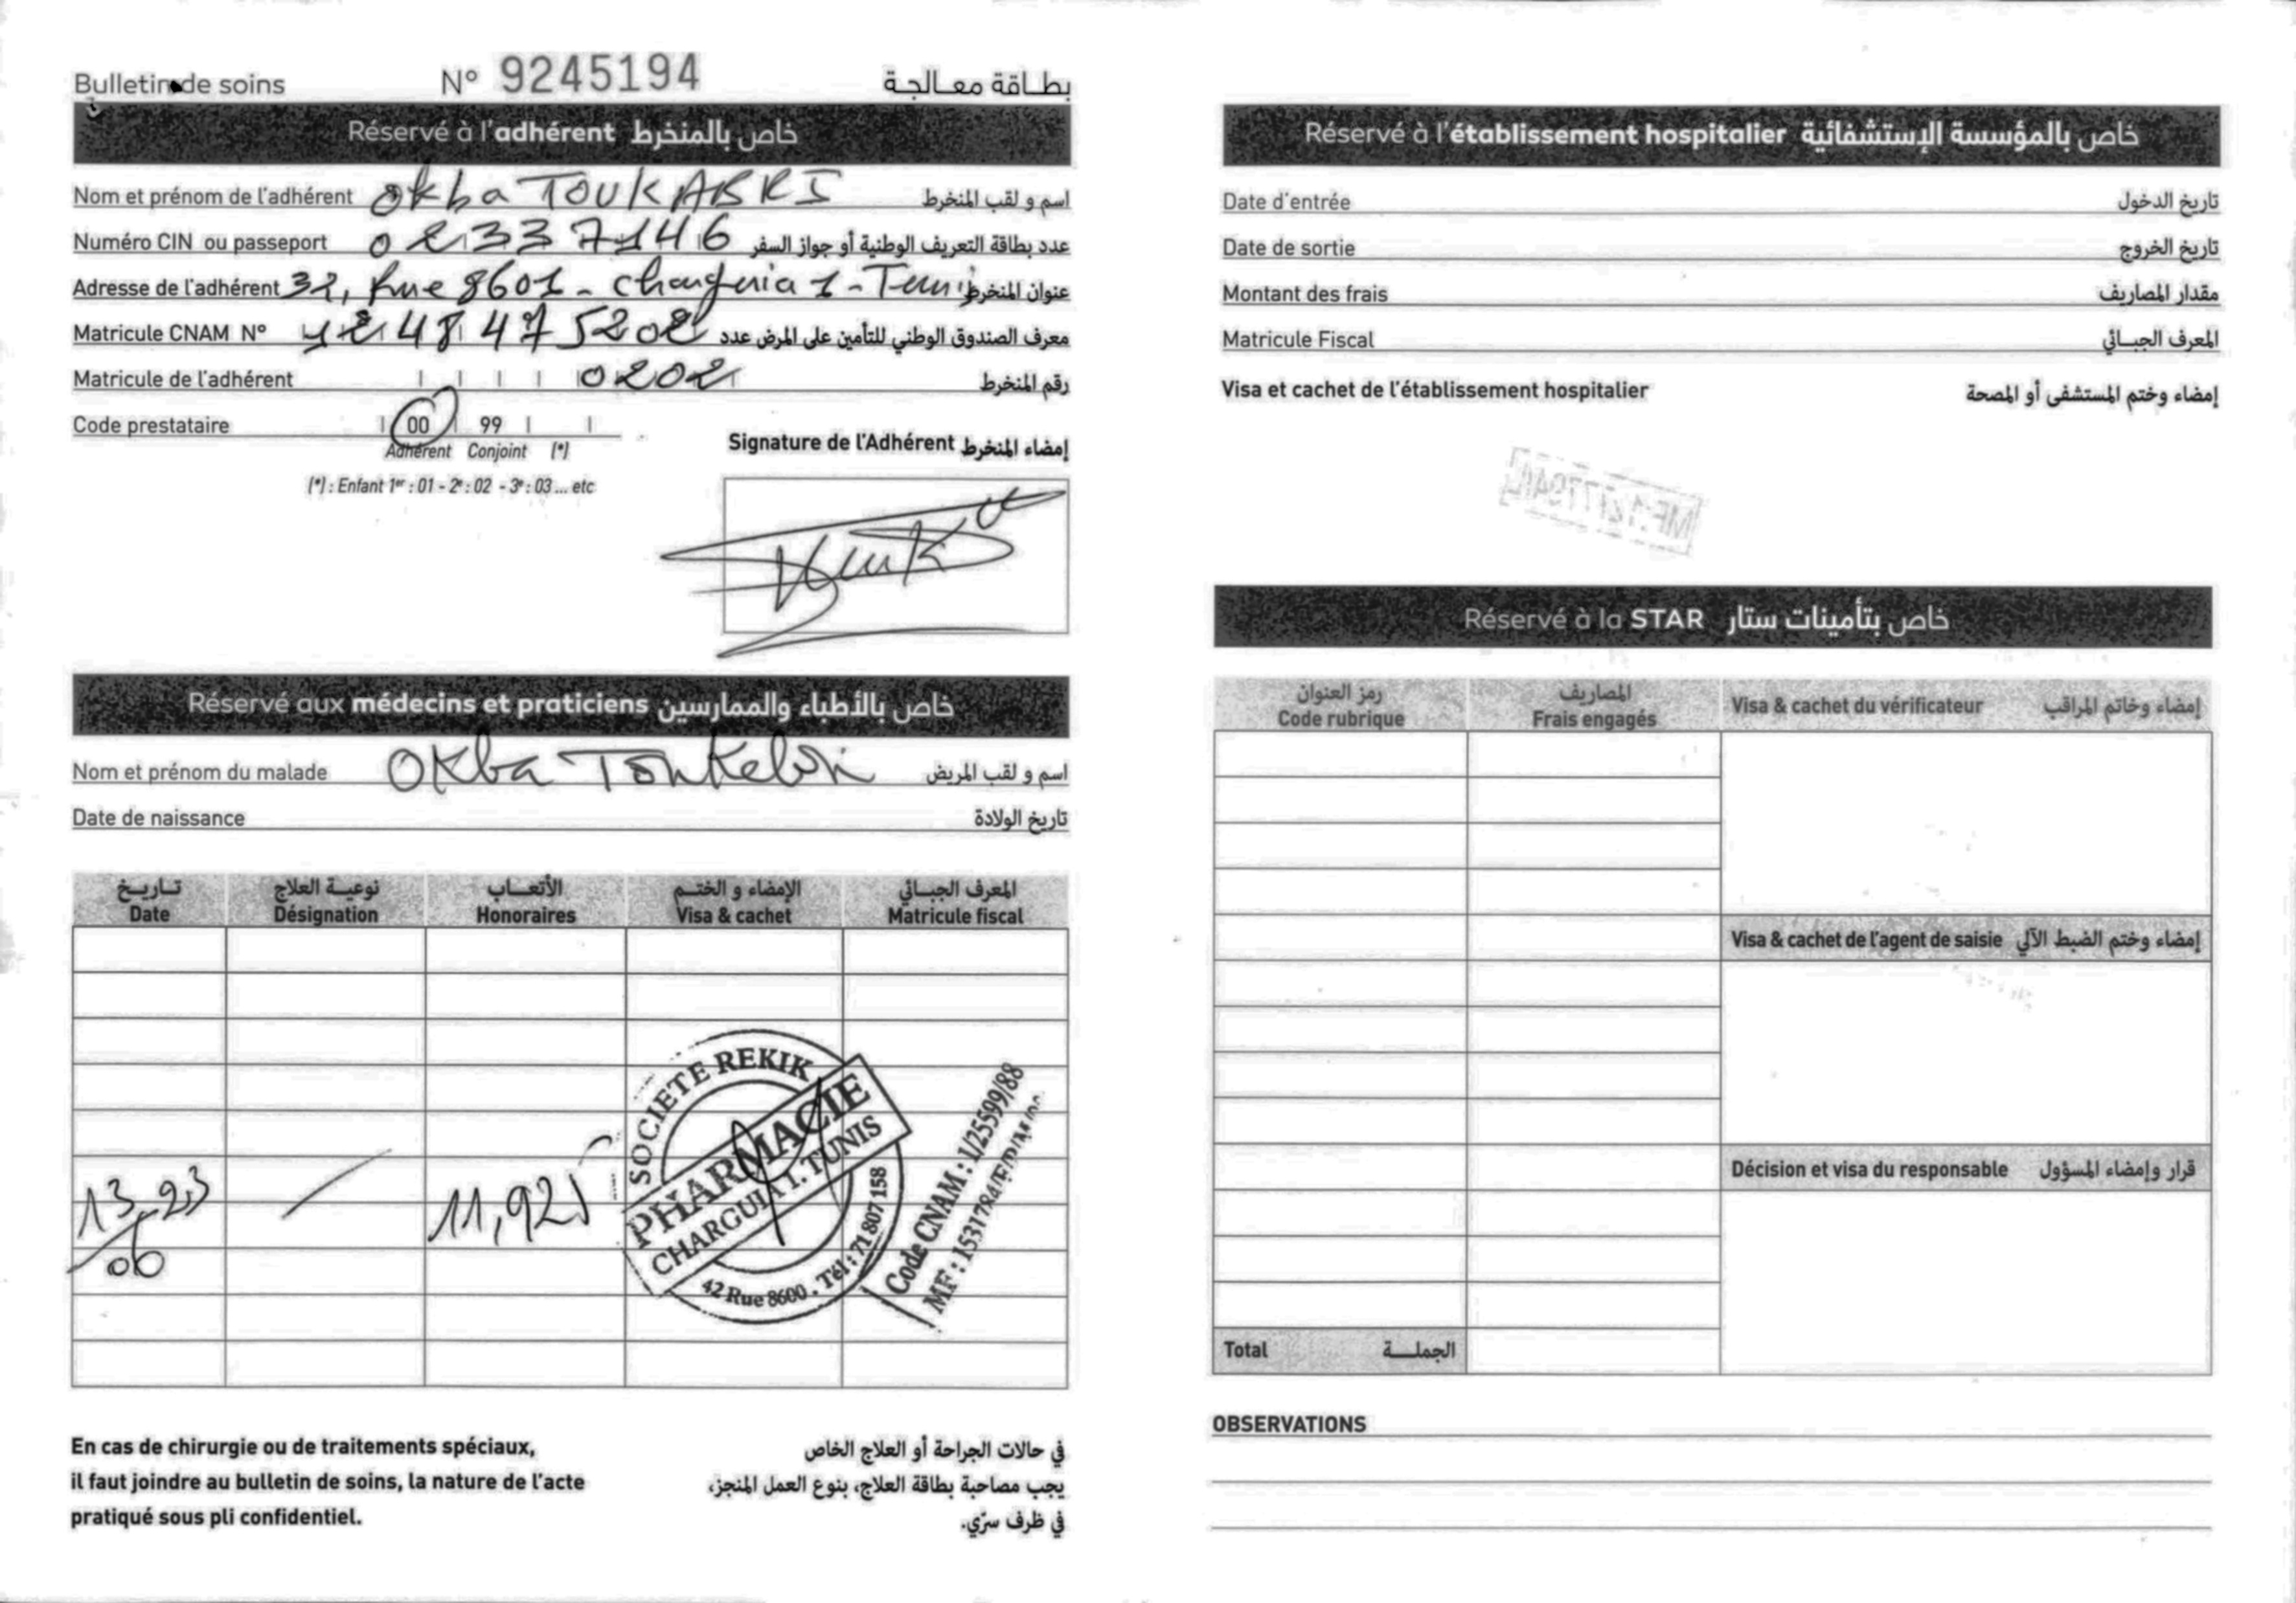 Bulletin de soins N° 9245194 بطاقة معالجة
Réservé à l'adhérent خاص بالمنخرط
Nom et prénom de l'adhérent Okba TOUKABRI اسم و لقب المنخرط
Numéro CIN ou passeport 02337146 عدد بطاقة التعريف الوطنية أو جواز السفر
Adresse de l'adhérent 32, Rue 8601 - charguia 1 - Tunis عنوان المنخرط
Matricule CNAM N° معرف الصندوق الوطني للتأمين على المرض عدد
Matricule de l'adhérent 0202 رقم المنخرط
Code prestataire 00 99
Adhérent Conjoint (*)
(*) : Enfant 1er : 01 - 2e : 02 - 3e : 03 ... etc
Signature de l'Adhérent إمضاء المنخرط
Réservé aux médecins et praticiens خاص بالأطباء والممارسين
Nom et prénom du malade Okba Toukabri اسم و لقب المريض
Date de naissance تاريخ الولادة
تاريخ نوعية العلاج الأتعاب الإمضاء و الختم المعرف الجبائي
Date Désignation Honoraires Visa & cachet Matricule fiscal
13 06 23 11,925
SOCIETE REKIK
PHARMACIE
CHARGUIA 1. TUNIS
42 Rue 8600 . Tél : 71 807 158
Code CNAM : 1/25599/88
MF : 1531784/F/P/M/000
En cas de chirurgie ou de traitements spéciaux,
il faut joindre au bulletin de soins, la nature de l'acte
pratiqué sous pli confidentiel.
في حالات الجراحة أو العلاج الخاص
يجب مصاحبة بطاقة العلاج، بنوع العمل المنجز،
في ظرف سرّي.
Réservé à l'établissement hospitalier خاص بالمؤسسة الإستشفائية
Date d'entrée تاريخ الدخول
Date de sortie تاريخ الخروج
Montant des frais مقدار المصاريف
Matricule Fiscal المعرف الجبائي
Visa et cachet de l'établissement hospitalier إمضاء وختم المستشفى أو المصحة
Réservé à la STAR خاص بتأمينات ستار
رمز العنوان المصاريف
Code rubrique Frais engagés Visa & cachet du vérificateur إمضاء وخاتم المراقب
Visa & cachet de l'agent de saisie إمضاء وختم الضبط الآلي
Décision et visa du responsable قرار وإمضاء المسؤول
Total الجملة
OBSERVATIONS